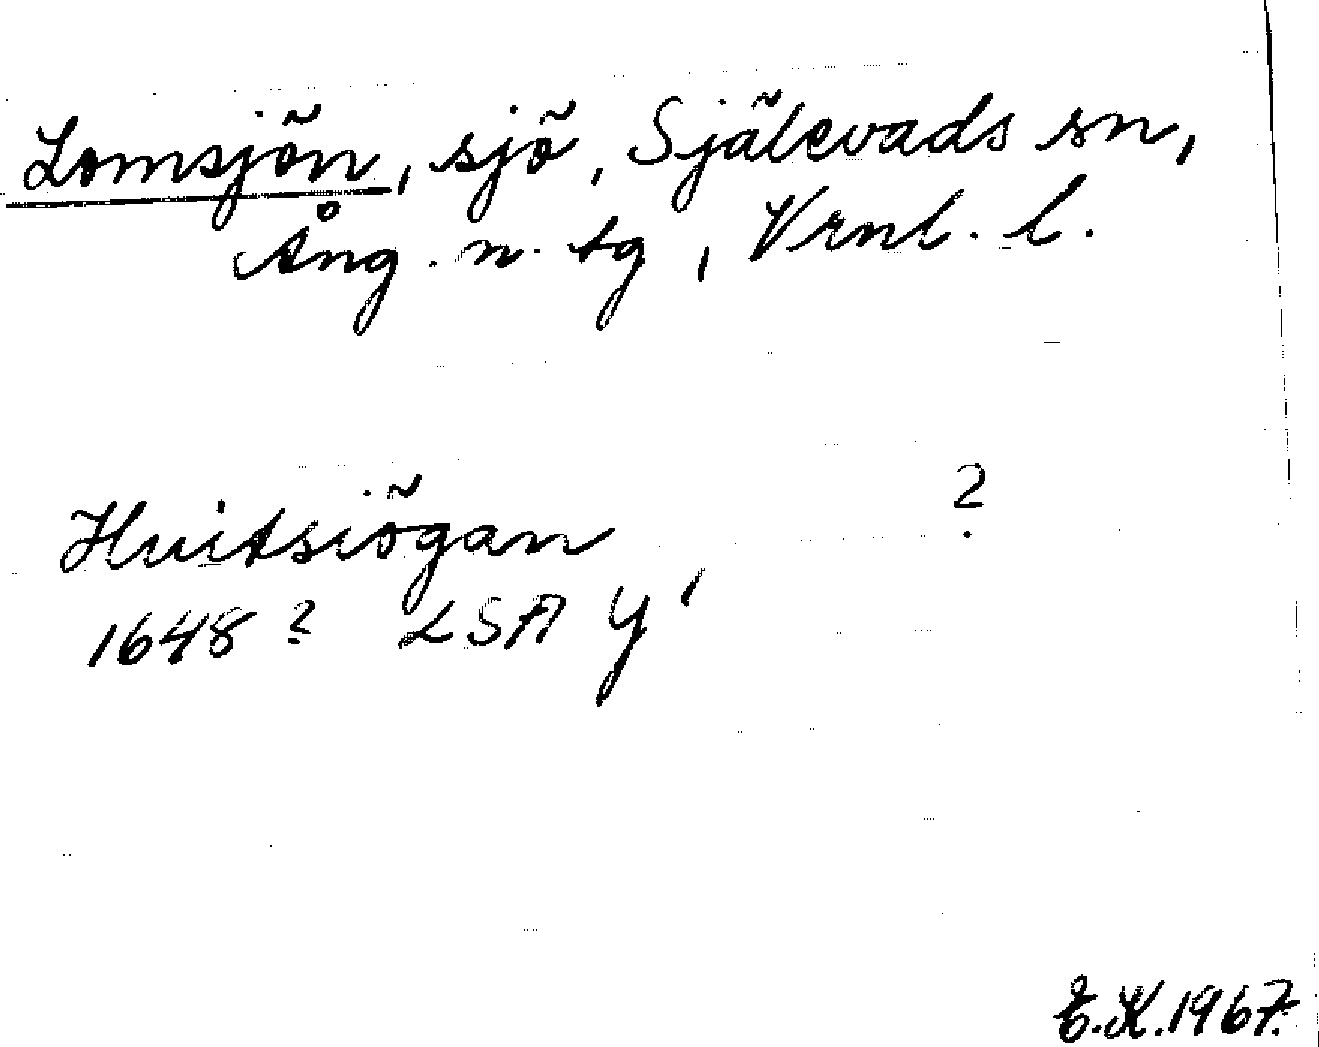 Lomsjön, sjö, Själevads sn,
Ång. n. tg, Vrnl. l.
Huitsiögan ?
1648? LSA Y'
E.K. 1967.